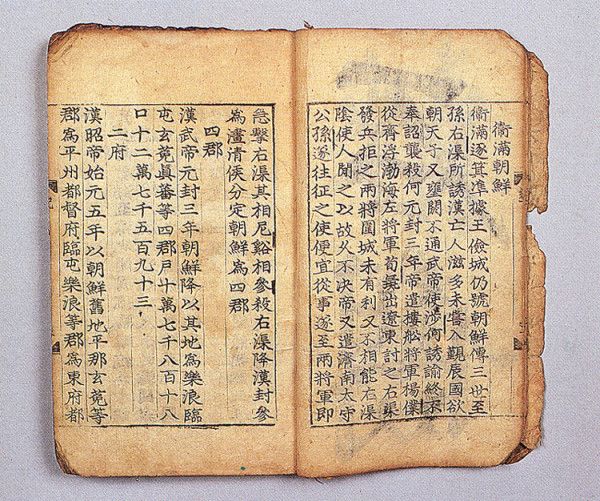 衛滿朝鮮
衛滿逐箕準據王儉城仍號朝鮮傳三世至
孫右渠所誘漢亡人滋多未嘗入覲辰國欲
朝天子又壅閼不通武帝使涉何誘諭終不
奉詔襲殺何元封三年帝遣樓船將軍楊僕
從齊浮渤海左將軍荀彘出遼東討之右渠
發兵拒之兩將圍城未有利又不相能右渠
陰使人聞之以故久不决帝又遣濟南太守
公孫遂往征之使便宜從事遂至兩將軍即
急擊右渠其相尼谿相參殺右渠降漢封參
為澅清侯分定朝鮮為四郡
四郡
漢武帝元封三年朝鮮降以其地為樂浪臨
屯玄菟眞蕃等四郡戶十萬七千八百十八
口十二萬七千五百九十三
二府
漢昭帝始元五年以朝鮮舊地平那玄菟等
郡為平州都督府臨屯樂浪等郡為東府都